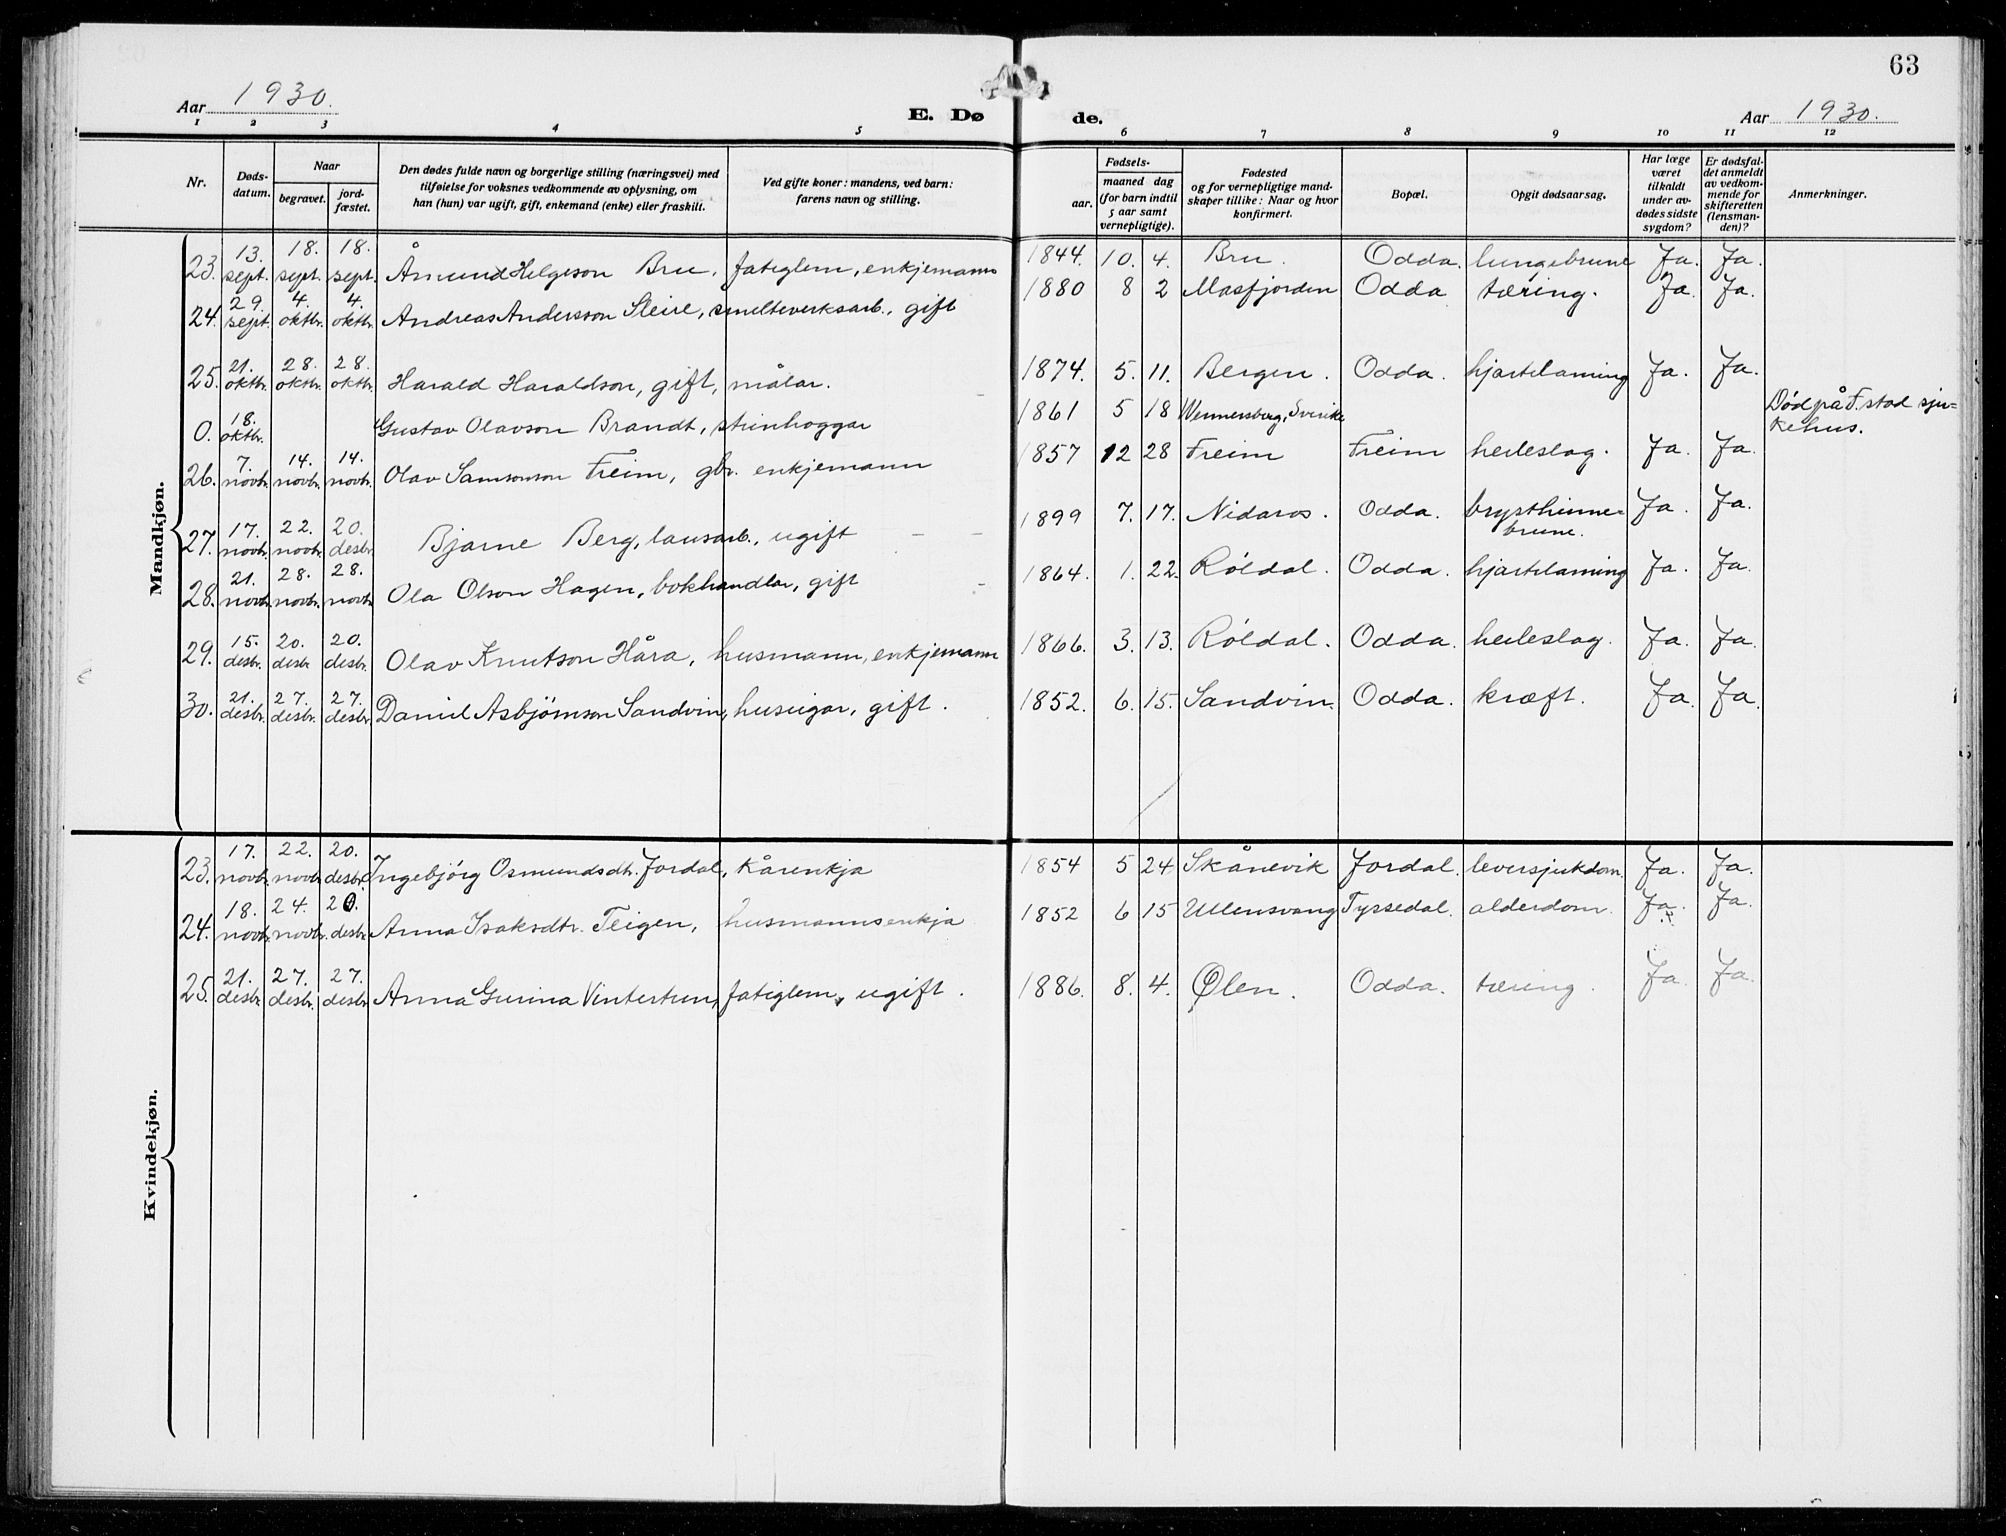 63
Aar 1930.
E. Døde.
Aar 1930.
1 2 3 4 5 6 7 8 9 10 11 12
Nr.
Døds-datum.
Naar
begravet.
jord-fæstet.
Den dødes fulde navn og borgerlige stilling (næringsvei) med
tilføielse for voksnes vedkommende av oplysning, om
han (hun) var ugift, gift, enkemand (enke) eller fraskilt.
Ved gifte koner: mandens, ved barn:
farens navn og stilling.
Fødsels-
aar.
maaned dag
(for barn indtil
5 aar samt
vernepligtige).
Fødested
og for vernepligtige mand-
skaper tillike: Naar og hvor
konfirmert.
Bopæl.
Opgit dødsaarsag.
Har læge
været
tilkaldt
under av-
dødes sidste
sygdom?
Er dødsfal-
det anmeldt
av vedkom-
mende for
skifteretten
(lensman-
den)?
Anmerkninger.
Mandkjøn.
23. 13. sept. 18. sept. 18. sept. Åmund Helgeson Bru, fatiglem, enkjemann 1844. 10. 4. Bru. Odda. lungebrune Ja. Ja.
24. 29. sept. 4. oktbr. 4. oktbr. Andreas Andersson Sleire, smelteverksarb., gift 1880 8 2 Masfjorden Odda tæring. Ja. Ja.
25. 21. oktbr. 28. oktbr. 28. oktbr. Harald Haraldson, gift, målar. 1874. 5. 11. Bergen. Odda. hjartelaming Ja. Ja.
0. 18. oktbr. Gustav Olavson Brandt, steinhoggar 1861 5 18 Wennersberg, Sverike Død på F.stad sju-
kehus.
26. 7. novbr. 14. novbr. 14. novbr. Olav Samsonson Freim, gbr. enkjemann 1857 12 28 Freim Freim heileslag. Ja. Ja.
27. 17. novbr. 22. novbr. 20. desbr. Bjarne Berg, lausarb., ugift 1899 7. 17. Nidaros. Odda. brysthinne-
brune. Ja. Ja.
28. 21. novbr. 28. novbr. 28. novbr. Ola Olson Hagen, bokhandlar, gift 1864. 1. 22. Røldal. Odda. hjartelaming Ja. Ja.
29. 15. desbr. 20. desbr 20. desbr. Olav Knutson Håra, husmann, enkjemann 1866. 3. 13. Røldal. Odda. heileslag. Ja. Ja.
30. 21. desbr. 27. desbr. 27. desbr. Daniel Asbjørnson Sandvin, huseigar, gift. 1852. 6. 15. Sandvin. Odda. kræft. Ja. Ja.
Kvindekjøn.
23. 17. novbr. 22. novbr. 20. desbr. Ingebjørg Osmundsdtr. Jordal, kårenkja 1854 5 24 Skånevik Jordal. leversjukdom. Ja. Ja.
24. 18. novbr. 24. novbr. 20. desbr. Anna Isaksdtr. Teigen, husmannsenkja 1852 6 15 Ullensvang Tyssedal. alderdom. Ja. Ja.
25. 21. desbr. 27. desbr. 27. desbr. Anna Gurina Vintertun, fatiglem, ugift. 1886. 8. 4. Ølen. Odda. tæring. Ja. Ja.